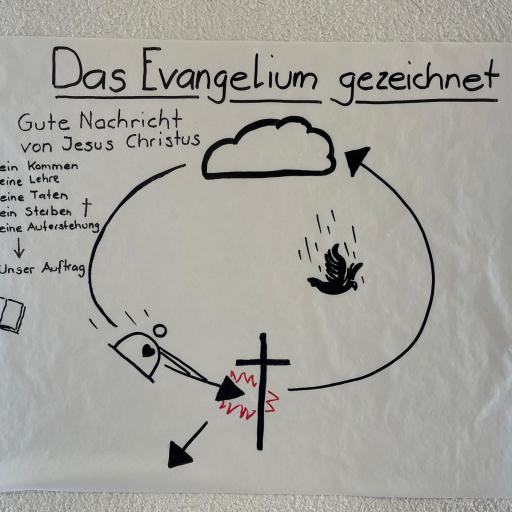 Das Evangelium gezeichnet
Gute Nachricht
von Jesus Christus
ein Kommen
eine Lehre
eine Taten
ein Sterben †
eine Auferstehung
Unser Auftrag